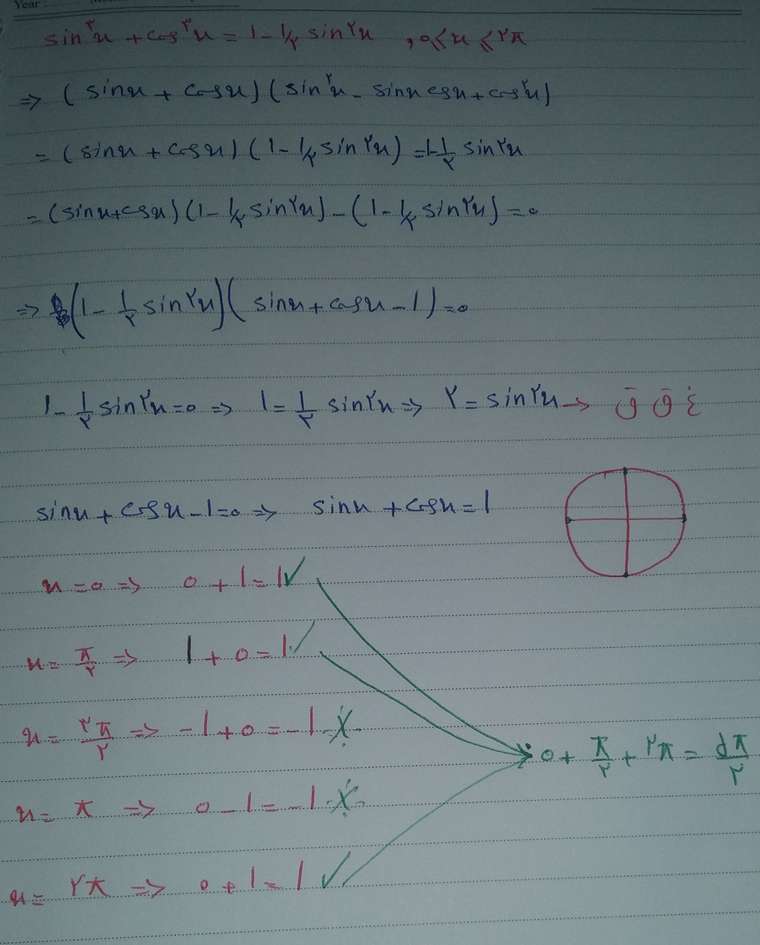 Year:
sin³x + cos³x = 1 - ½ sin۲x , ۰ ≤ x ≤ ۲π
⇒ (sinx + cosx) (sin²x - sinx cosx + cos²x)
= (sinx + cosx) (1 - ½ sin۲x) = 1 - ½ sin۲x
= (sinx + cosx) (1 - ½ sin۲x) - (1 - ½ sin۲x) = ۰
⇒ (1 - ½ sin۲x) (sinx + cosx - 1) = ۰
1 - ½ sin۲x = ۰ ⇒ 1 = ½ sin۲x ⇒ ۲ = sin۲x → غ ق ق
sinx + cosx - 1 = ۰ ⇒ sinx + cosx = 1
x = ۰ ⇒ ۰ + 1 = 1 ✓
x = π/۲ ⇒ 1 + ۰ = 1 ✓
x = ۳π/۲ ⇒ -1 + ۰ = -1 ✗
۰ + π/۲ + ۲π = ۵π/۲
x = π ⇒ ۰ - 1 = -1 ✗
x = ۲π ⇒ ۰ + 1 = 1 ✓